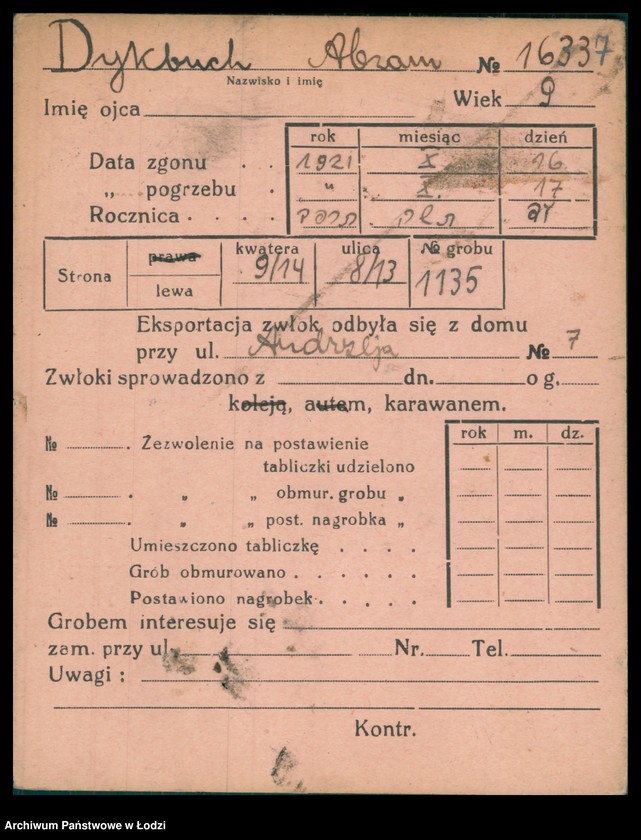 Dykbuch Abram № 16337
Nazwisko i imię
Imię ojca Wiek 9
rok miesiąc dzień
Data zgonu 1921 X 16
„ pogrzebu " X 17
Rocznica
Strona prawa kwatera ulica № grobu
lewa 9/14 8/13 1135
Eksportacja zwłok odbyła się z domu
przy ul. Andrzeja № 7
Zwłoki sprowadzono z dn. o g.
koleją, autem, karawanem.
rok m. dz.
№ . Zezwolenie na postawienie
tabliczki udzielono
№ . „ „ obmur. grobu „
№ . „ „ post. nagrobka „
Umieszczono tabliczkę . . . .
Grób obmurowano . . . . . .
Postawiono nagrobek . . . . .
Grobem interesuje się
zam. przy ul. Nr. Tel.
Uwagi :
Kontr.
Archiwum Państwowe w Łodzi